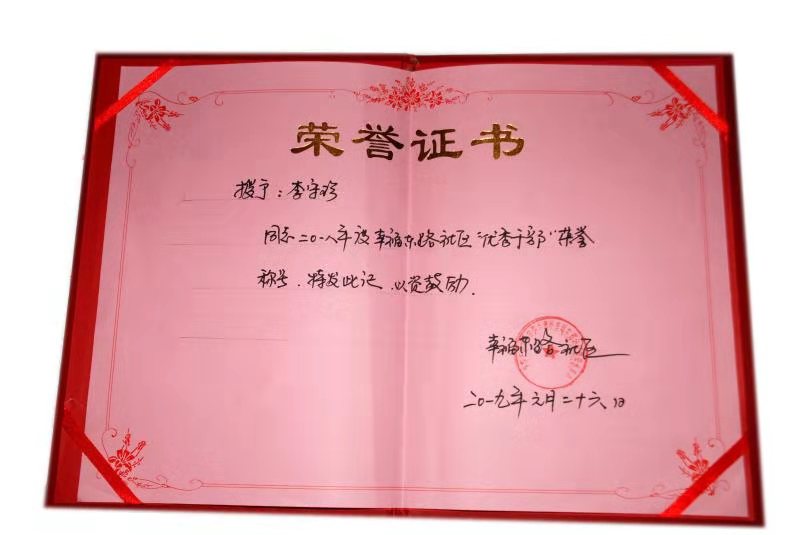 荣誉证书
授予：李守珍
同志二〇一八年度幸福东路社区“优秀干部”荣誉
称号，特发此证，以资鼓励。
幸福东路社区
二〇一九年元月二十六日